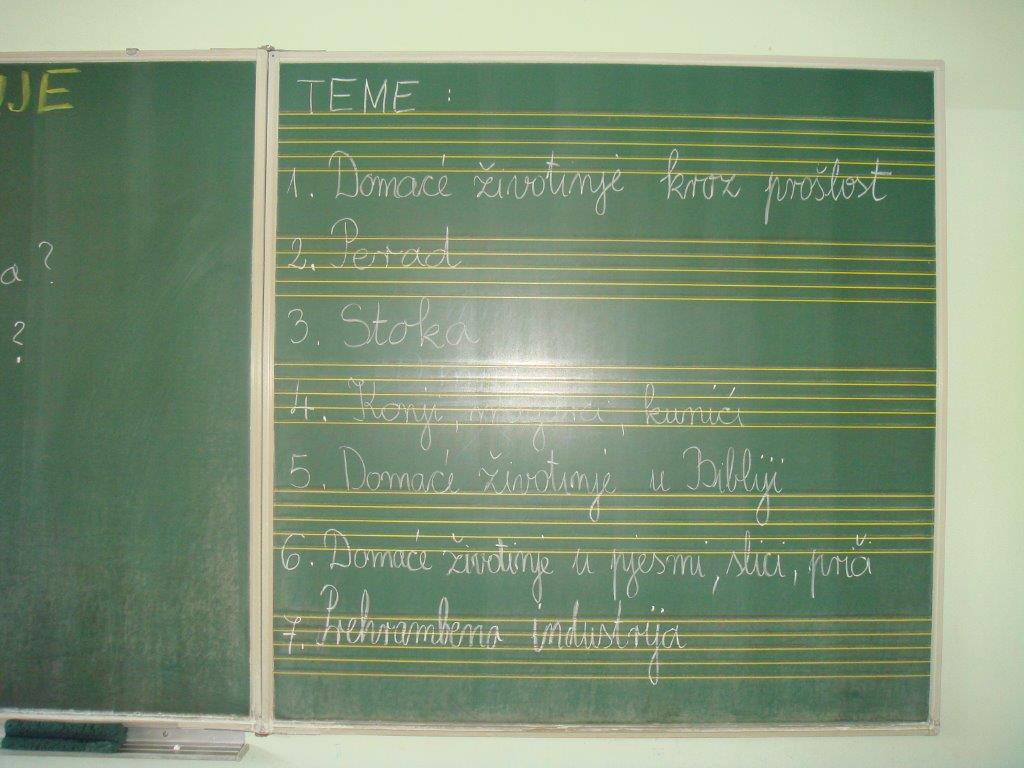 IJE
a ?
?
TEME :
1. Domaće životinje kroz prošlost
2. Perad
3. Stoka
4. Konji, magarci, kunići
5. Domaće životinje u Bibliji
6. Domaće životinje u pjesmi, slici, priči
7. Prehrambena industrija